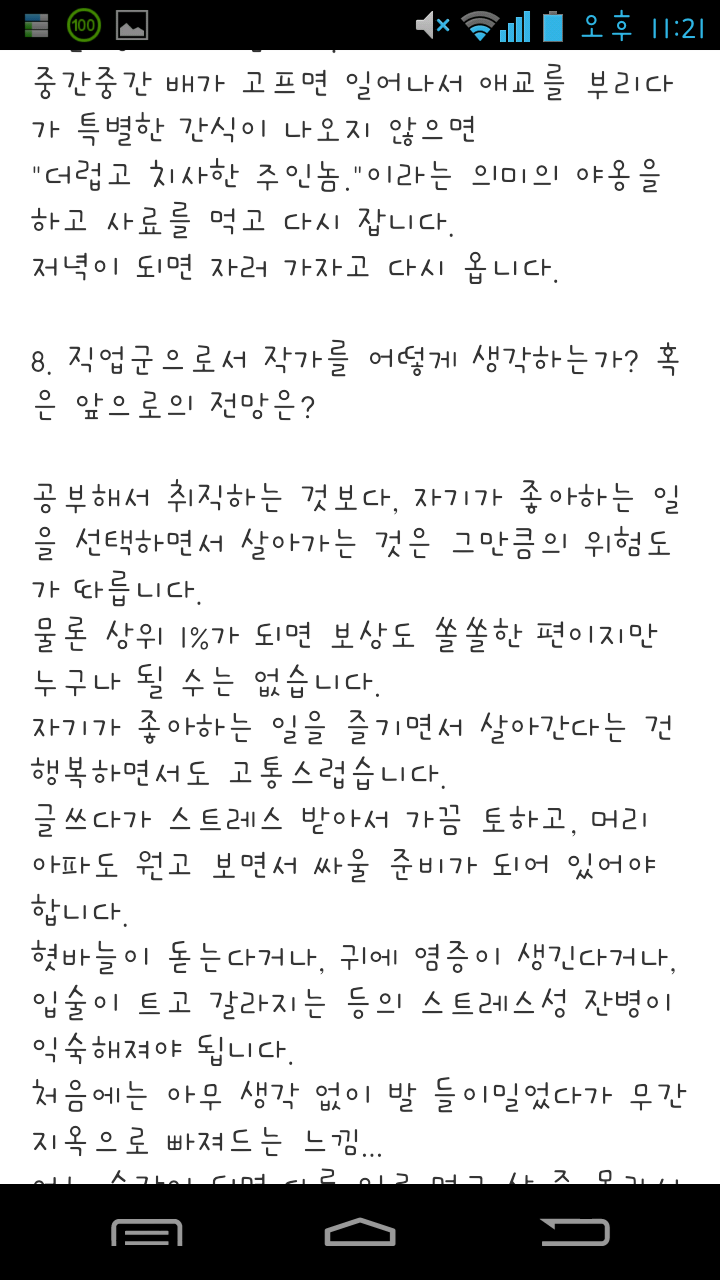 100
오후 11:21
중간중간 배가 고프면 일어나서 애교를 부리다
가 특별한 간식이 나오지 않으면
"더럽고 치사한 주인놈."이라는 의미의 야옹을
하고 사료를 먹고 다시 잡니다.
저녁이 되면 자러 가자고 다시 옵니다.
8. 직업군으로서 작가를 어떻게 생각하는가? 혹
은 앞으로의 전망은?
공부해서 취직하는 것보다, 자기가 좋아하는 일
을 선택하면서 살아가는 것은 그만큼의 위험도
가 따릅니다.
물론 상위 1%가 되면 보상도 쏠쏠한 편이지만
누구나 될 수는 없습니다.
자기가 좋아하는 일을 즐기면서 살아간다는 건
행복하면서도 고통스럽습니다.
글쓰다가 스트레스 받아서 가끔 토하고, 머리
아파도 원고 보면서 싸울 준비가 되어 있어야
합니다.
혓바늘이 돋는다거나, 귀에 염증이 생긴다거나,
입술이 트고 갈라지는 등의 스트레스성 잔병이
익숙해져야 됩니다.
처음에는 아무 생각 없이 발 들이밀었다가 무간
지옥으로 빠져드는 느낌...